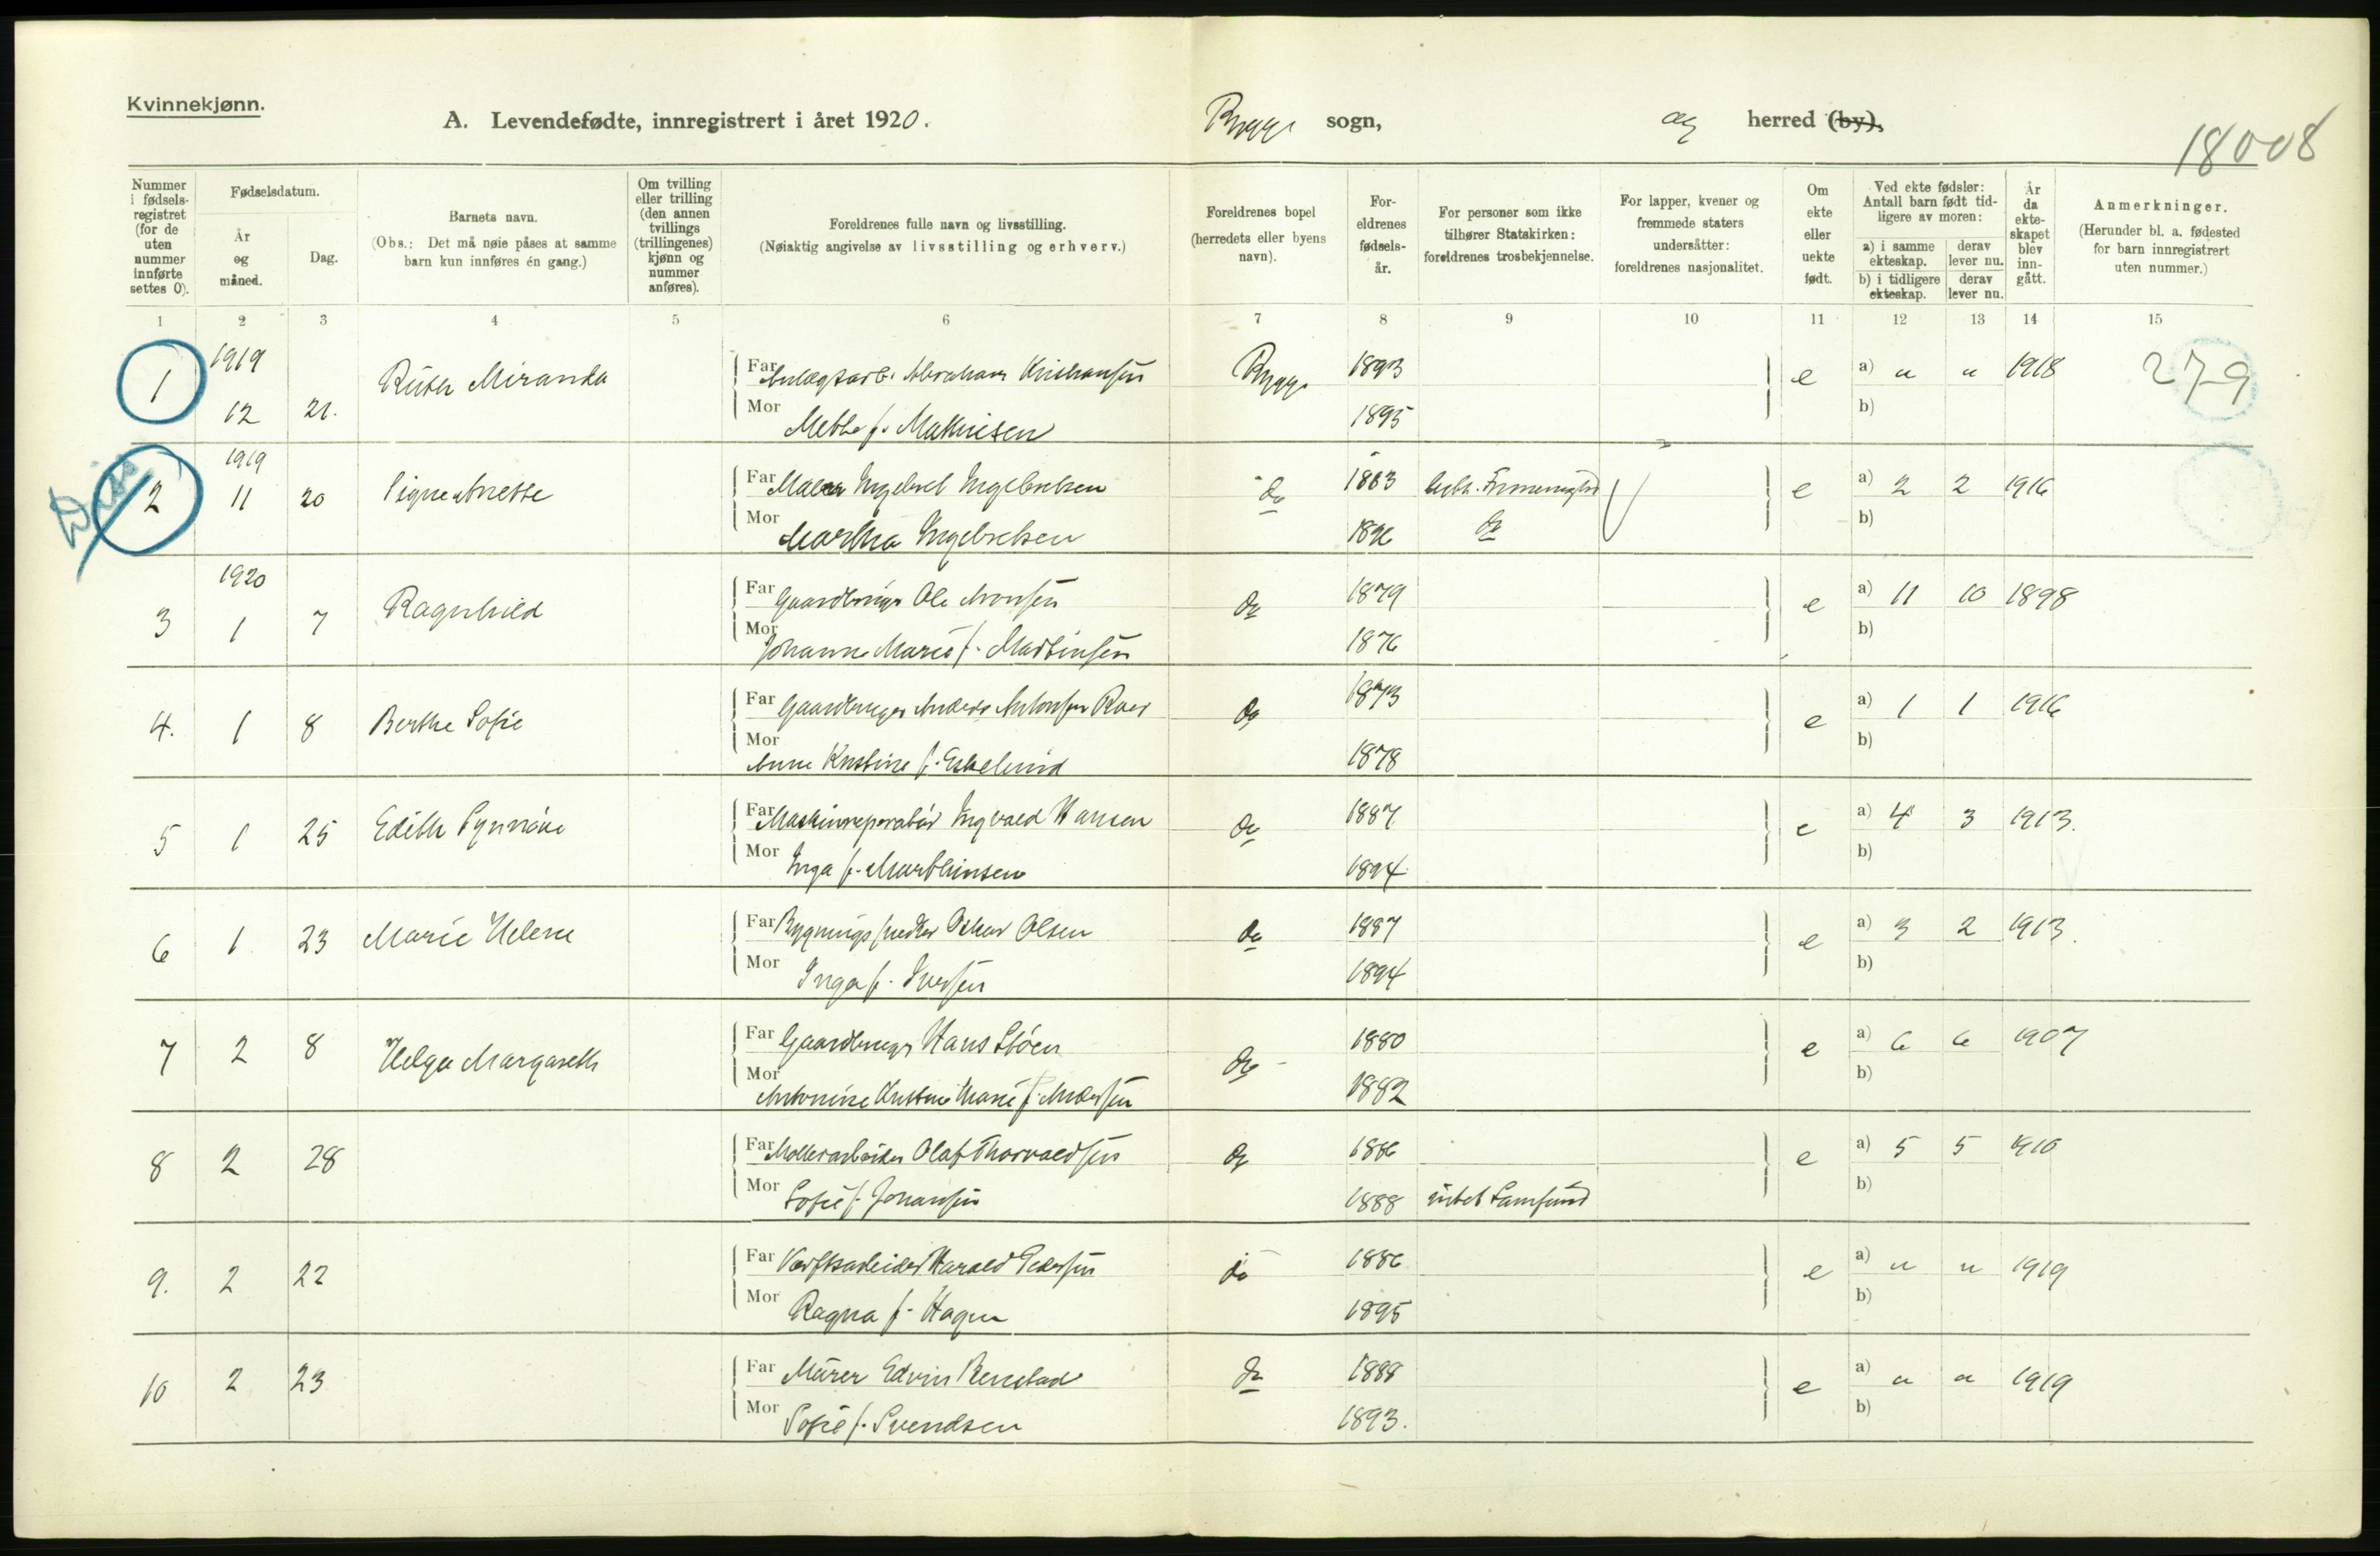 Kvinnekjønn.
A. Levendefødte, innregistrert i året 1920. Rygge sogn, og herred (by).
18008
Nummer i fødsels-registret (for de uten nummer innførte settes 0).
Fødselsdatum.
År og måned.
Dag.
Barnets navn.
(Obs.: Det må nøie påses at samme barn kun innføres én gang.)
Om tvilling eller trilling (den annen tvillings (trillingenes) kjønn og nummer anføres).
Foreldrenes fulle navn og livsstilling.
(Nøiaktig angivelse av livsstilling og erhverv.)
Foreldrenes bopel (herredets eller byens navn).
For-eldrenes fødsels-år.
For personer som ikke tilhører Statskirken: foreldrenes trosbekjennelse.
For lapper, kvener og fremmede staters undersåtter: foreldrenes nasjonalitet.
Om ekte eller uekte født.
Ved ekte fødsler: Antall barn født tid-ligere av moren:
a) i samme ekteskap. derav lever nu.
b) i tidligere ekteskap. derav lever nu.
År da ekte-skapet blev inn-gått.
Anmerkninger.
(Herunder bl. a. fødested for barn innregistrert uten nummer.)
1 2 3 4 5 6 7 8 9 10 11 12 13 14 15
1 1919 12 21. Ruth Miranda
Far Anlægsarb. Abraham Kristiansen Rygge 1893 e a) " " 1918 279
Mor Mette f. Mathisen 1895 b)
2 1919 11 20 Signe Anette
Far Maler Ingebret Ingebretsen do 1883 e a) 2 2 1916
Mor Martha Ingebretsen 1896 do b)
Diss
3 1920 1 7 Ragnhild
Far Gaardbruger Ole Aronsen do 1879 e a) 11 10 1898
Mor Johanne Marie f. Martinsen 1876 b)
4. 1 8 Berthe Sofie
Far Gaardbruger Anders Antonsen Roer do 1873 e a) 1 1 1916
Mor Anne Kristine f. Eskelund 1878 b)
5 1 25 Edith Synnöve
Far Maskinreparatör Ingvald Hansen do 1887 e a) 4 3 1913.
Mor Inga f. Marthinsen 1894 b)
6 1 23 Marie Helene
Far Bygningssnedker Oskar Olsen do 1887 e a) 3 2 1913.
Mor Inga f. Iversen 1894 b)
7 2 8 Helga Margareth
Far Gaardbruger Hans Støen do 1880 e a) 6 6 1907
Mor Antonine Kristine Marie f. Andersen 1882 b)
8 2 28
Far Møllerarbeider Olaf Thorvaldsen do 1886 e a) 5 5 1910
Mor Sofie f. Johansen 1888 intet Samfund b)
9. 2 22
Far Værftsarbeider Harald Pedersen do 1886 e a) " " 1919
Mor Ragna f. Hagen 1895 b)
10 2 23
Far Murer Edvin Renstad do 1888 e a) " " 1919
Mor Sofie f. Svendsen 1893. b)